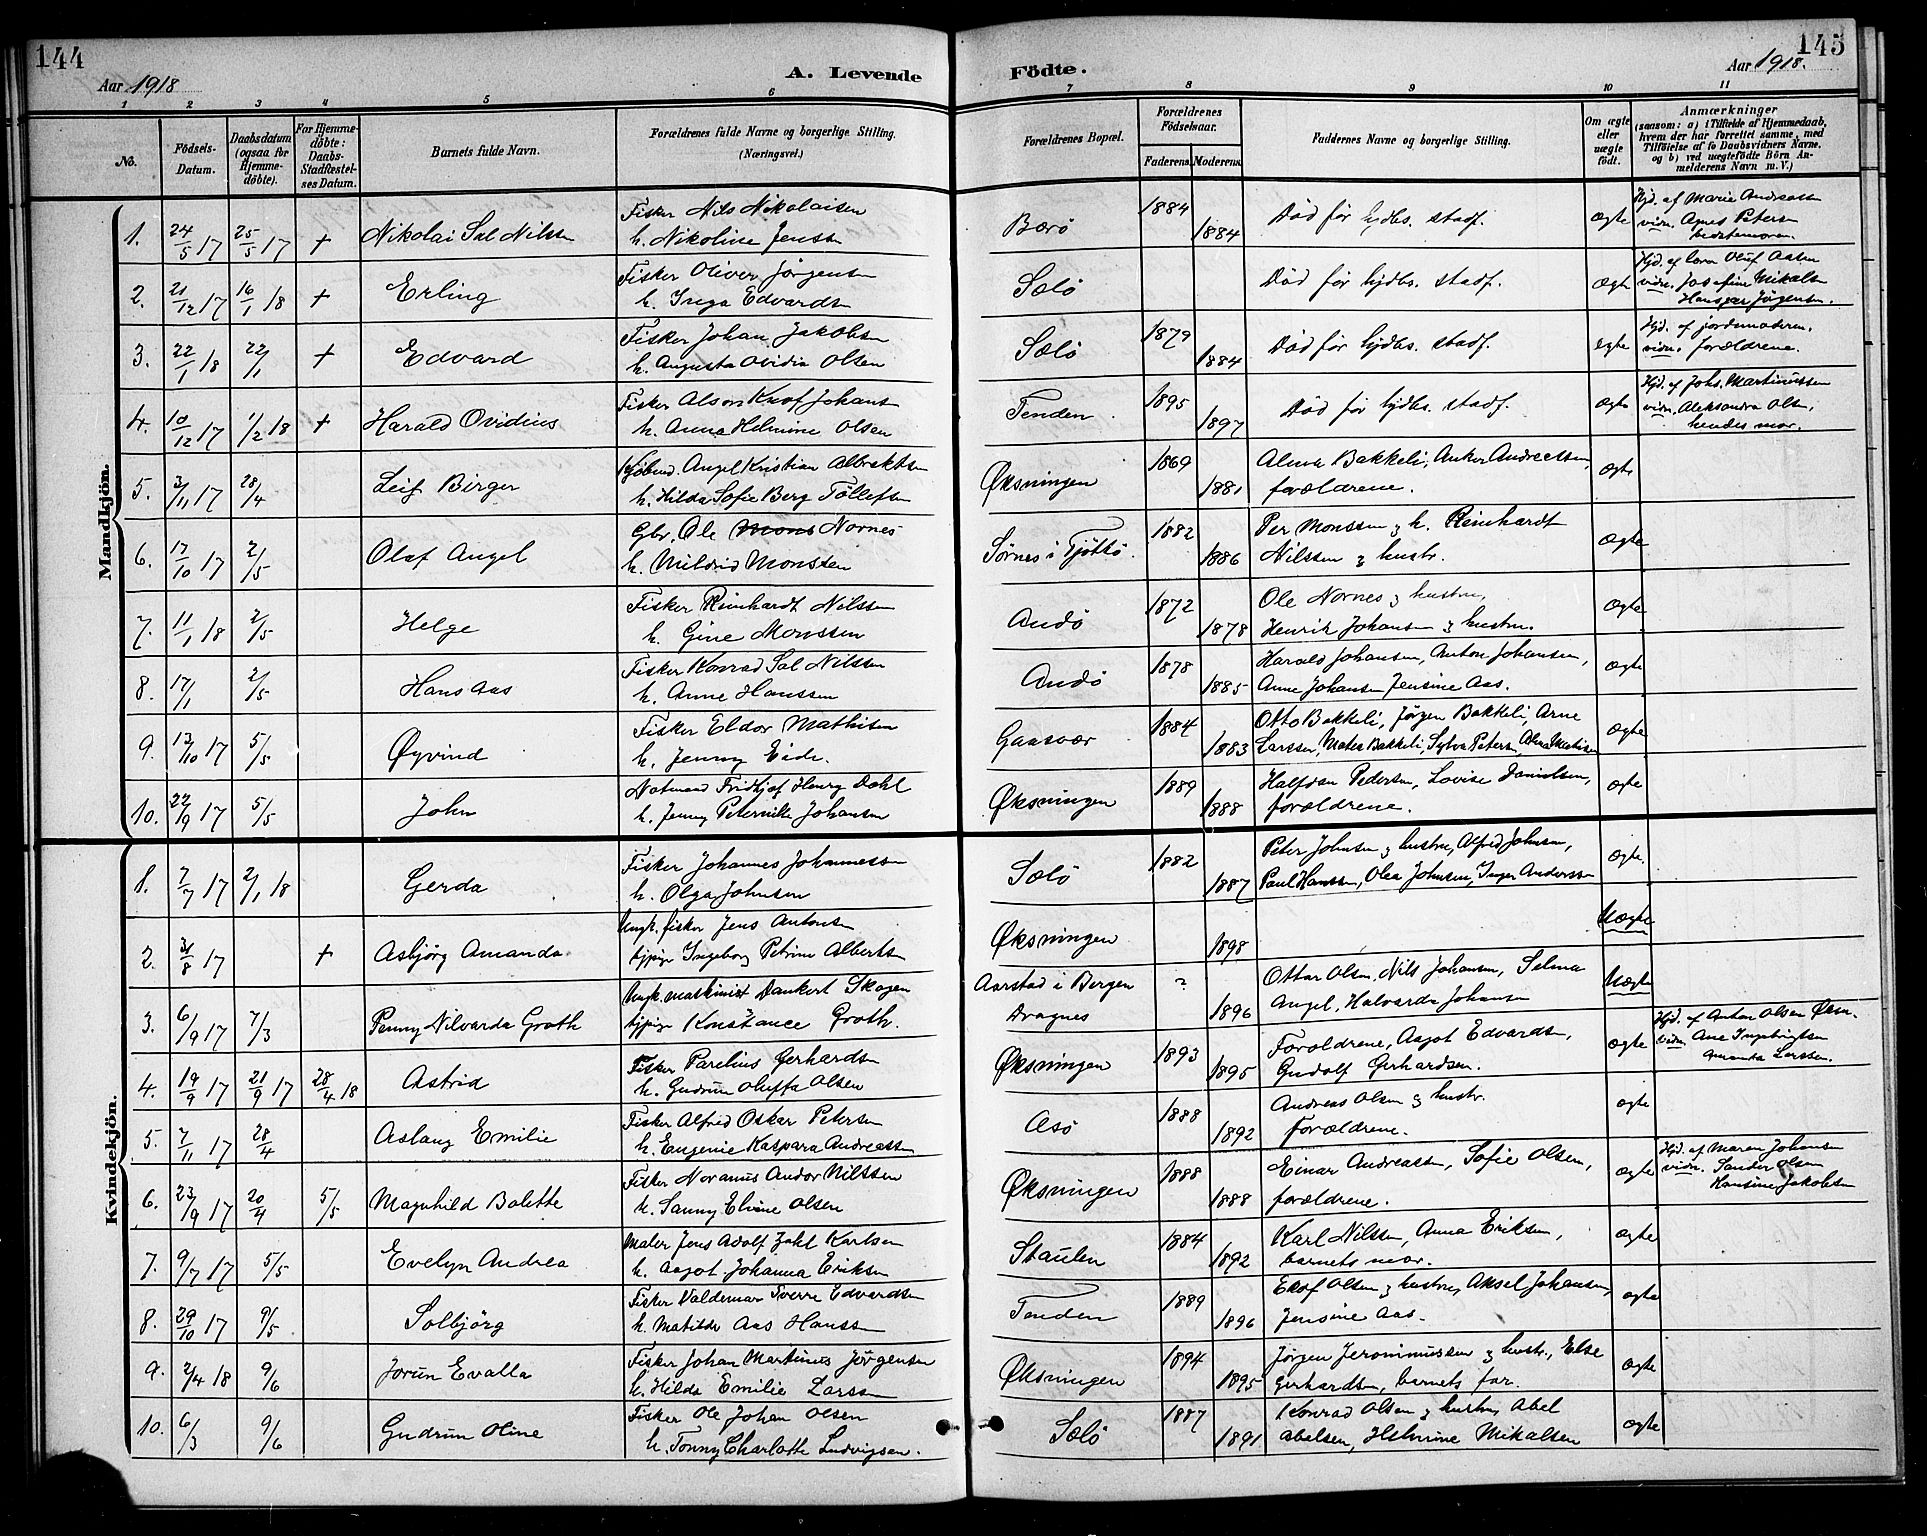 144
Aar 1918
A. Levende
1 2 3 4 5 6
No.
Födsels-Datum.
Daabsdatum (ogsaa for Hjemmedöbte).
For Hjemmedöbte: Daabs-Stadfæstelses Datum.
Barnets fulde Navn.
Forældrenes fulde Navne og borgerlige Stilling. (Næringsvei.)
Mandkjön.
1. 24/5 17 25/5 17 + Nikolai Sal Nilssen Fisker Nils Nikolaisen
h. Nikoline Jenssen
2. 21/12 17 16/1 18 + Erling Fisker Oliver Jørgensen
h. Inga Edvardsen
3. 22/1 18 22/1 + Edvard Fisker Johan Jakobsen
h. Augusta Ovidia Olsen
4. 10/12 17 1/2 18 + Harald Ovidius Fisker Alson Johans
h. Anna Helmine Olsen
5. 3/11 17 28/4 Leif Birger Angel Kristian Albrektsen
h. Hilda Sofie Berg Tøllefsen
6. 17/10 17 2/5 Olaf Angel Gbr. Ole Mons Nornes
h. Mildrid Monssen
7. 11/1 18 2/5 Helge Fisker Reinhardt Nilssen
h. Gine Monssen
8. 17/1 2/5 Hans Aas Fisker Konrad Sal Nilssen
h. Anne Hanssen
9. 13/10 17 5/5 Øyvind Fisker Eldor Mathisen
h. Jenny Eide.
10. 22/9 17 5/5 John Notmand Fridtjof Henry Dahl
h. Jenny Peternille Johansen
Kvindekjön.
1. 7/7 17 2/1 18 Gerda Fisker Johannes Johannessen
h. Olga Johnsen
2. 31/8 17 + Asbjörg Amanda Ungk. fisker Jens Antons
tjpige Ingeborg Petrine Alberts
3. 6/9 17 7/3 Penny Nilvarda Groth Ungk. maskinist Dankert Skogen
tjpige Konstance Groth.
4. 19/9 17 21/9 17 28/4 18 Astrid Fisker Parelius Gerhardsen
h. Gudrun Oluffa Olsen
5. 7/11 17 28/4 Aslaug Emilie Fisker Alfred Oskar Petersen
h. Eugenie Kaspara Andreassen
6. 23/9 17 20/4 5/5 Magnhild Bolette Fisker Noranus Andor Nilssen
h. Sanny Elvine Olsen
7. 9/7 17 5/5 Evelyn Andrea Maler Jens Adolf Karlsen
h. Aagot Johanna Eriksen
8. 29/10 17 9/5 Solbjörg Fisker Valdemar Sverre Edvardsen
h. Matilde Aas Hanssen
9. 2/4 18 9/6 Jorun Evalla Fisker Johan Martinus Jørgensen
h. Hilda Emilie Larssen
10. 6/3 9/6 Gudrun Oline Fisker Ole Johan Olsen
h. Tonny Charlotte Ludvigsen.
145
Födte.
Aar 1918.
7 8 9 10 11
Forældrenes Bopæl.
Forældrenes Födselsaar.
Faderens. Moderens.
Faddernes Navne og borgerlige Stilling.
Om ægte eller uægte födt.
Anmærkninger
(saasom: a) i Tilfælde af Hjemmedaab, hvem der har forrettet samme, med Tilföielse af to Daabsvidners Navne, og b) ved uægtefödte Börn Anmelderens Navn m. V.)
Borø 1884 1884 Død før hjdbs. stadf. ægte Hjd. af Marie Andreassen
vidn. Agnes Petersen
bestemoren.
Sælø Død før hjdbs. stadf. ægte Hjd. af Oluf Aasen
vidn. Josefine Mikalsen
Jørgensen.
Sælø 1879 1884 Død før hjdbs. stadf. ægte Hjd. af jordmoderen.
vidn. forældrene.
Tenden 1895 1897 Død før hjdbs. stadf. ægte Hjd. af Johs. Martinussen
vidn. Aleksandra Olsen,
hendes mor.
Øksningen 1869 1881 Alma Bakkeli, Anker Andreassen,
forældrene. ægte
Sørnes i Tjøttø. 1882 1886 Per Monssen & h. Reinhardt
Nilssen & hustr. ægte
Andø 1872 1878 Ole Nornes & hustru,
Henrik Johansen & hustru. ægte
Andø 1878 1885 Harald Johansen, Anton Johansen,
Anne Johansen Jensine Aas. ægte
Gaasvær 1884 1883 Otto Bakkeli, Jørgen Bakkeli, Arne
Larssen, Bakkeli, Petersen, ægte
Øksningen 1889 1888 Halfdan Pedersen, Lovise Danielsen,
forældrene. ægte
Sælø 1882 1887 Peter Johnsen & hustru, Alfred Johnsen,
Paul Hanssen, Olea Johnsen, Inger Anderssen ægte.
Øksningen 1898 Uægte
Aarstad i Bergen
Dragnes ? 1896 Ottar Olsen, Nils Johansen, Selma
Angel, Halvarda Johansen Uægte
Øksningen 1893 1895 Forældrene, Aagot Edvardsen,
Gudolf Gerhardsen. ægte Hjd. af Anton Olsen Øksn.
vidn. Ane Ingebrigtsen
Amanda Larssen.
Asø 1888 1892 Andreas Olsen & hustr.
Forældrene. ægte
Øksningen 1888 1888 Einar Andreassen, Sofie Olsen,
forældrene. ægte Hjd. af Maren Johansen
vidn. Sander Olsen
Hansine Jakobsen
Staulen 1884 1892 Karl Nilssen, Anna Eriksen,
barnets mor. ægte
Tenden 1889 1896 Olsen & hustru, Aksel Johansen,
Jensine Aas. ægte
Øksningen 1894 1895 Jørgen Jeronimussen & hustr., Else
Gerhardsen, barnets far. ægte
Sælø 1887 1891 Konrad Olsen & hustru, Abel
Abelsen, Helmine Mikalsen ægte